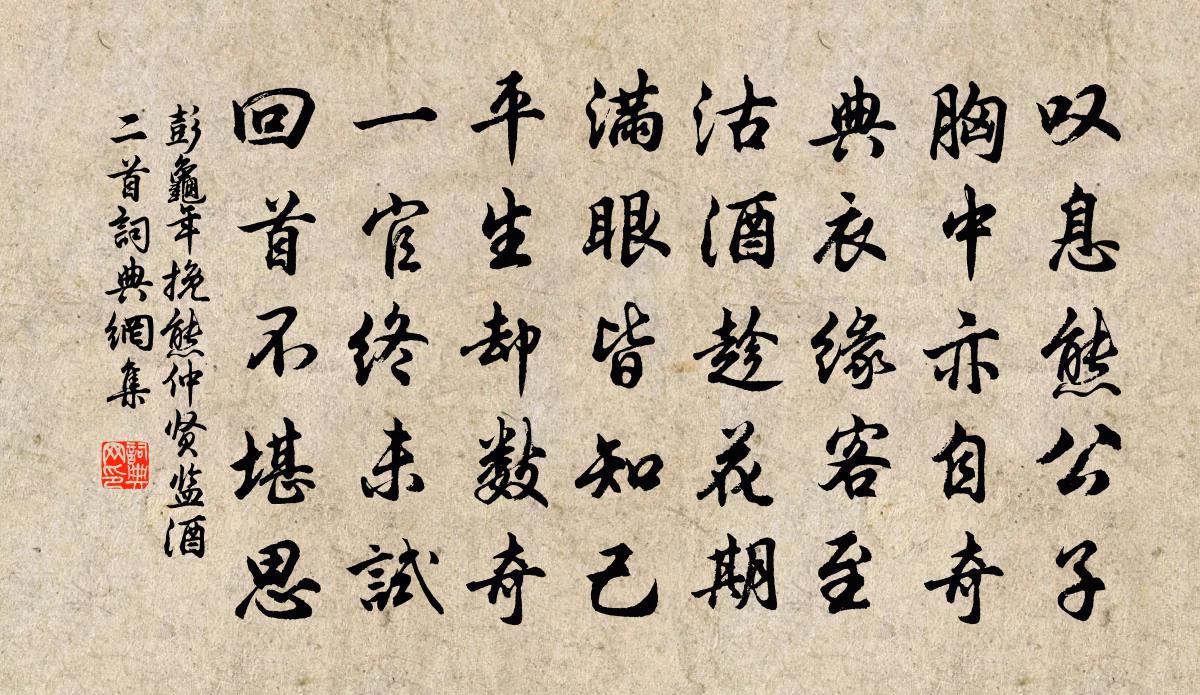 叹息熊公子
胸中亦自奇
典衣缘客至
沽酒趁花期
满眼皆知己
平生却数奇
一官终未試
回首不堪思
彭龜年挽熊仲贤监酒
二首詞典網集
詞典
网印